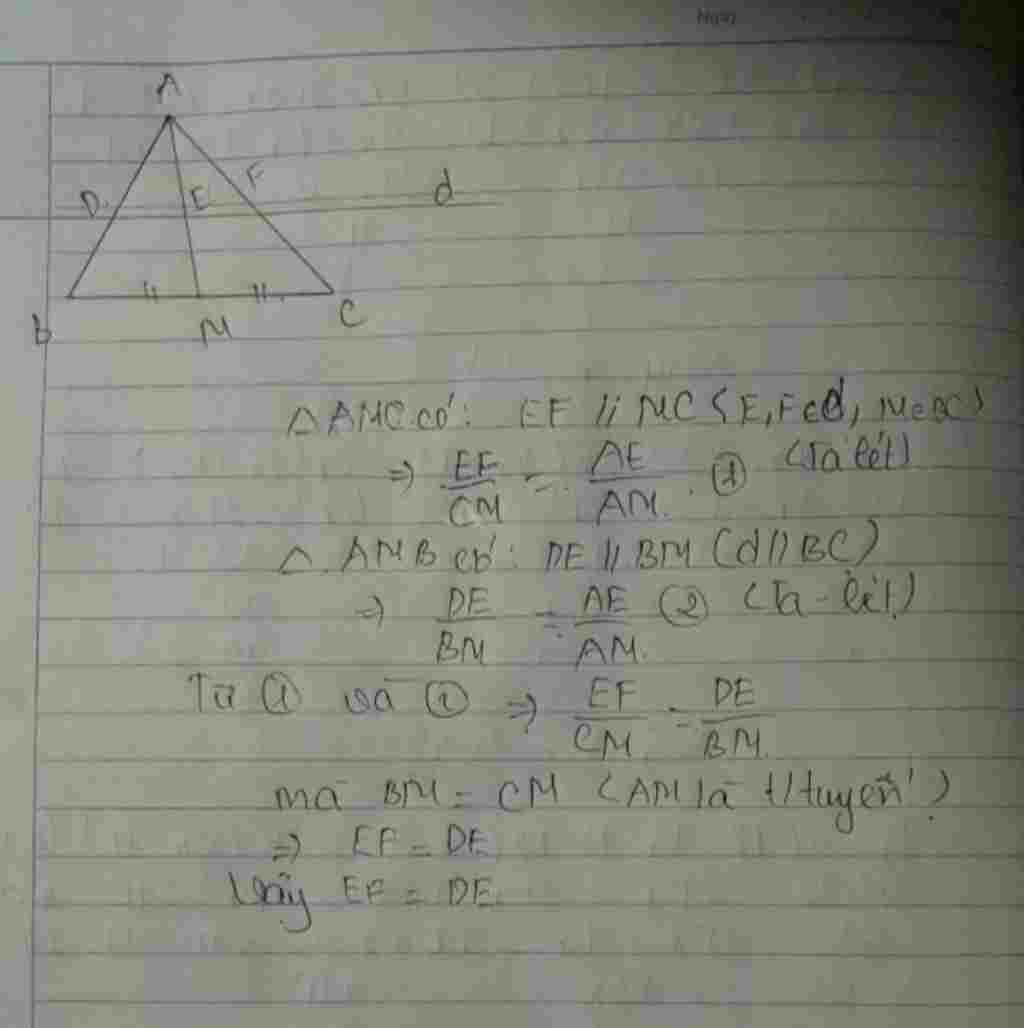 A
D
E
F
d
B
M
C
△AMC có: EF // MC (E, F ∈ d, M ∈ BC)
⇒ EF/CM = AE/AM. ① (Ta lét)
△ AMB có: DE // BM (d // BC)
⇒ DE/BM = AE/AM. ② (Ta-lét)
Từ ① và ② ⇒ EF/CM = DE/BM.
mà BM = CM (AM là t/tuyến)
⇒ EF = DE
Vậy EF = DE